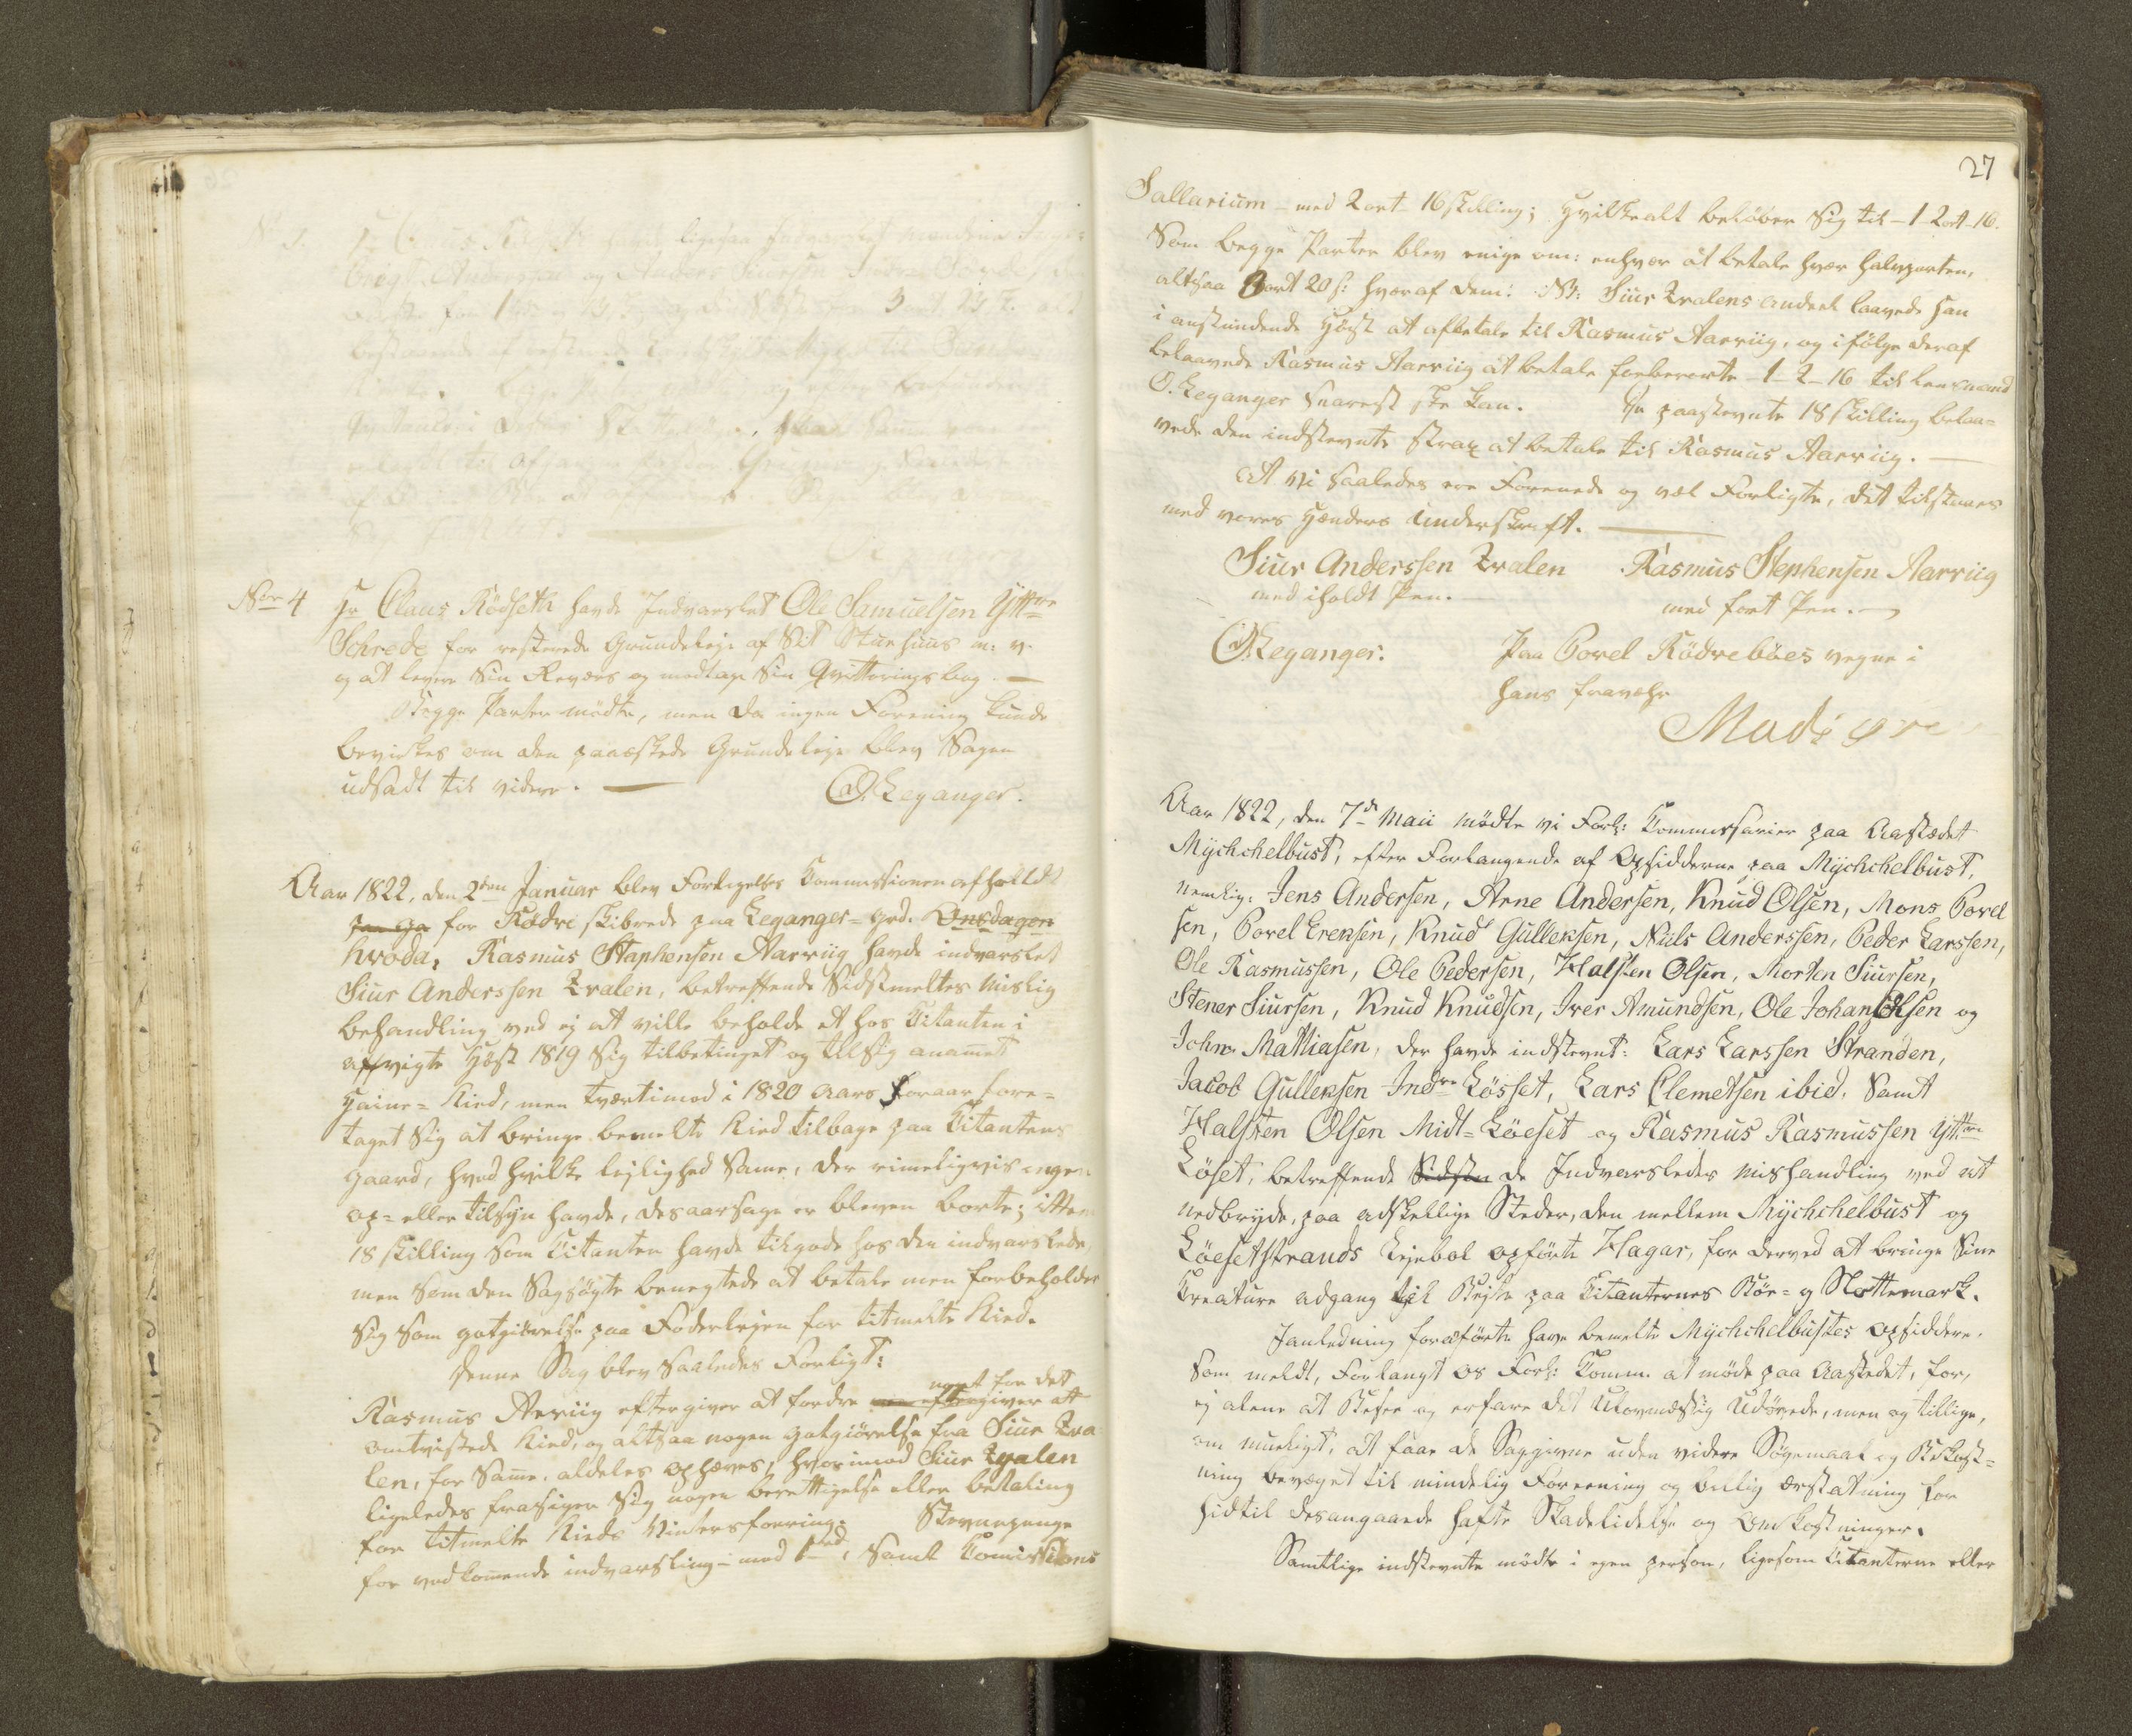 No 3.
ligesaa Indvarslet
Brigt Andersen og Anders
Nor 4 Hr Claus Rödseth havde Indvarslet Ole Samuelsen Yttre
Schrede for resterede Grundeleje af Sit Stuehuus m: v.
og at levere Sin Revers og modtage Sin Qvitteringsbog. —
Begge Parter mödte, men da ingen Forening kunde
bevirkes om den paaæskede Grundeleje blev Sagen
udsadt til videre. — O. Leganger.
Aar 1822, den 2den Januar blev Forligelses Commissionen afholdt
for Rødve skibrede paa Leganger-grd. Onsdagen
hvoda, Rasmus Staphensen Aarviig havde indvarslet
Siur Anderssen Qvalen, betreffende Sidstmeltes mislig
behandling ved ej at ville beholde et hos Citanten i
afvigte Høst 1819 Sig tilbetinget og til sig anammet
Haine-Kied, men tværtimod i 1820 Aars foraar fore-
taget Sig at bringe bemelte Kied tilbage paa Citantens
gaard, hved hvilke lejlighed Samme, der rimeligvis ingen
op- eller tilsyn havde, desaarsage er bleven borte; ittem
18 skilling Som Citanten havde tilgode hos den indvarslede
men Som den Sagsøgte benegtede at betale men forbeholder
Sig Som gotgiörelse paa Foderlejen for titmelte Kied.
Denne Sag blev Saaledes Forligt:
noget for det
Rasmus Arviig eftergiver at fordre eftergiver at
omtvistede Kied, og altsaa nogen gotgiörelse fra Siur Qva
len, for Samme, aldeles ophæves, hvorimod Siur Qvalen
ligeledes frasiger Sig nogen berettigelse eller betaling
for titmelte Kieds Vintersfoering. Stevnepenge
for vedkommende indvarsling med 1 spd, samt Comissions
27
Sallarium – med 2 ort 16 skilling; hvilket alt beløber Sig til – 1 – 2 ort – 16.
Som begge Parter blev enige om: enhver at betale hver halvparten,
altsaa 3 ort 20 s: hver af dem: NB: Siur Qvalens andeel laavede han
i anstundende Høst at afbetale til Rasmus Aarviig, og i følge deraf
belaavede Rasmus Aarviig at betale forberørte 1 – 2 – 16 til Lensmand
O. Leganger Snarest ske kan. De paastevnte 18 skilling belaa-
vede den indstevnte strax at betale til Rasmus Aarviig. —
At vi Saaledes ere Forenede og vel Forligte, det tilstaaes
med vores Hænders Underskrift. —
Siur Anderssen Qvalen Rasmus Stephensen Aarviig
med iholdt Pen. med ført Pen.
O. Leganger. Paa Povel Rödvebøes vegne i
hans fravehr
Aar 1822, den 7de Maii mödte vi Forl: Commissarier paa Aastædet
Mÿchchelbust, efter Forlangende af Opsidderne paa Mÿchchelbust,
nemlig: Jens Andersen, Arne Andersen, Knud Olsen, Mons Povel
sen, Povel Ereksen, Knud Gulleksen, Niels Anderssen, Peder Larssen,
Ole Rasmussen, Ole Pedersen, Halsten Olsen, Morten Siursen,
Stener Siursen, Knud Knudsen, Iver Amundsen, Ole Johan Olsen og
John Mattiasen, der havde indstevnt: Lars Larssen Stranden,
Jacob Gulleksen Indre Lösset, Lars Clemetsen ibid, Samt
Halsten Olsen Midt-Löeset og Rasmus Rasmussen Yttre
Löset, betreffende Sidsten de Indvarsledes mishandling ved at
nedbryde, paa adskellige Steder, den mellem Mÿchchelbust og
Löesetstrands Lejebol opförte Hagar, for derved at bringe Sine
Creature adgang til Bejte paa Citanternes Bøe- og Slottemark.
I anledning foranførte have bemelte Mÿchchelbustes opsiddere,
Som meldt, Forlangt os Forl: Comm. at møde paa Aastedet, for,
ej alene at Besee og erfare det Ulovmæssig Udövede, men og tillige,
om mueligt, at faae de Saggivne uden videre Søgemaal og Bekost-
ning bevæget til mindelig Foreening og billig ærstatning for
hidtil desangaaende hafte Skadelidelse og omkostninger.
Samtlige indstevnte mödte i egen person, ligesom Citanterne eller